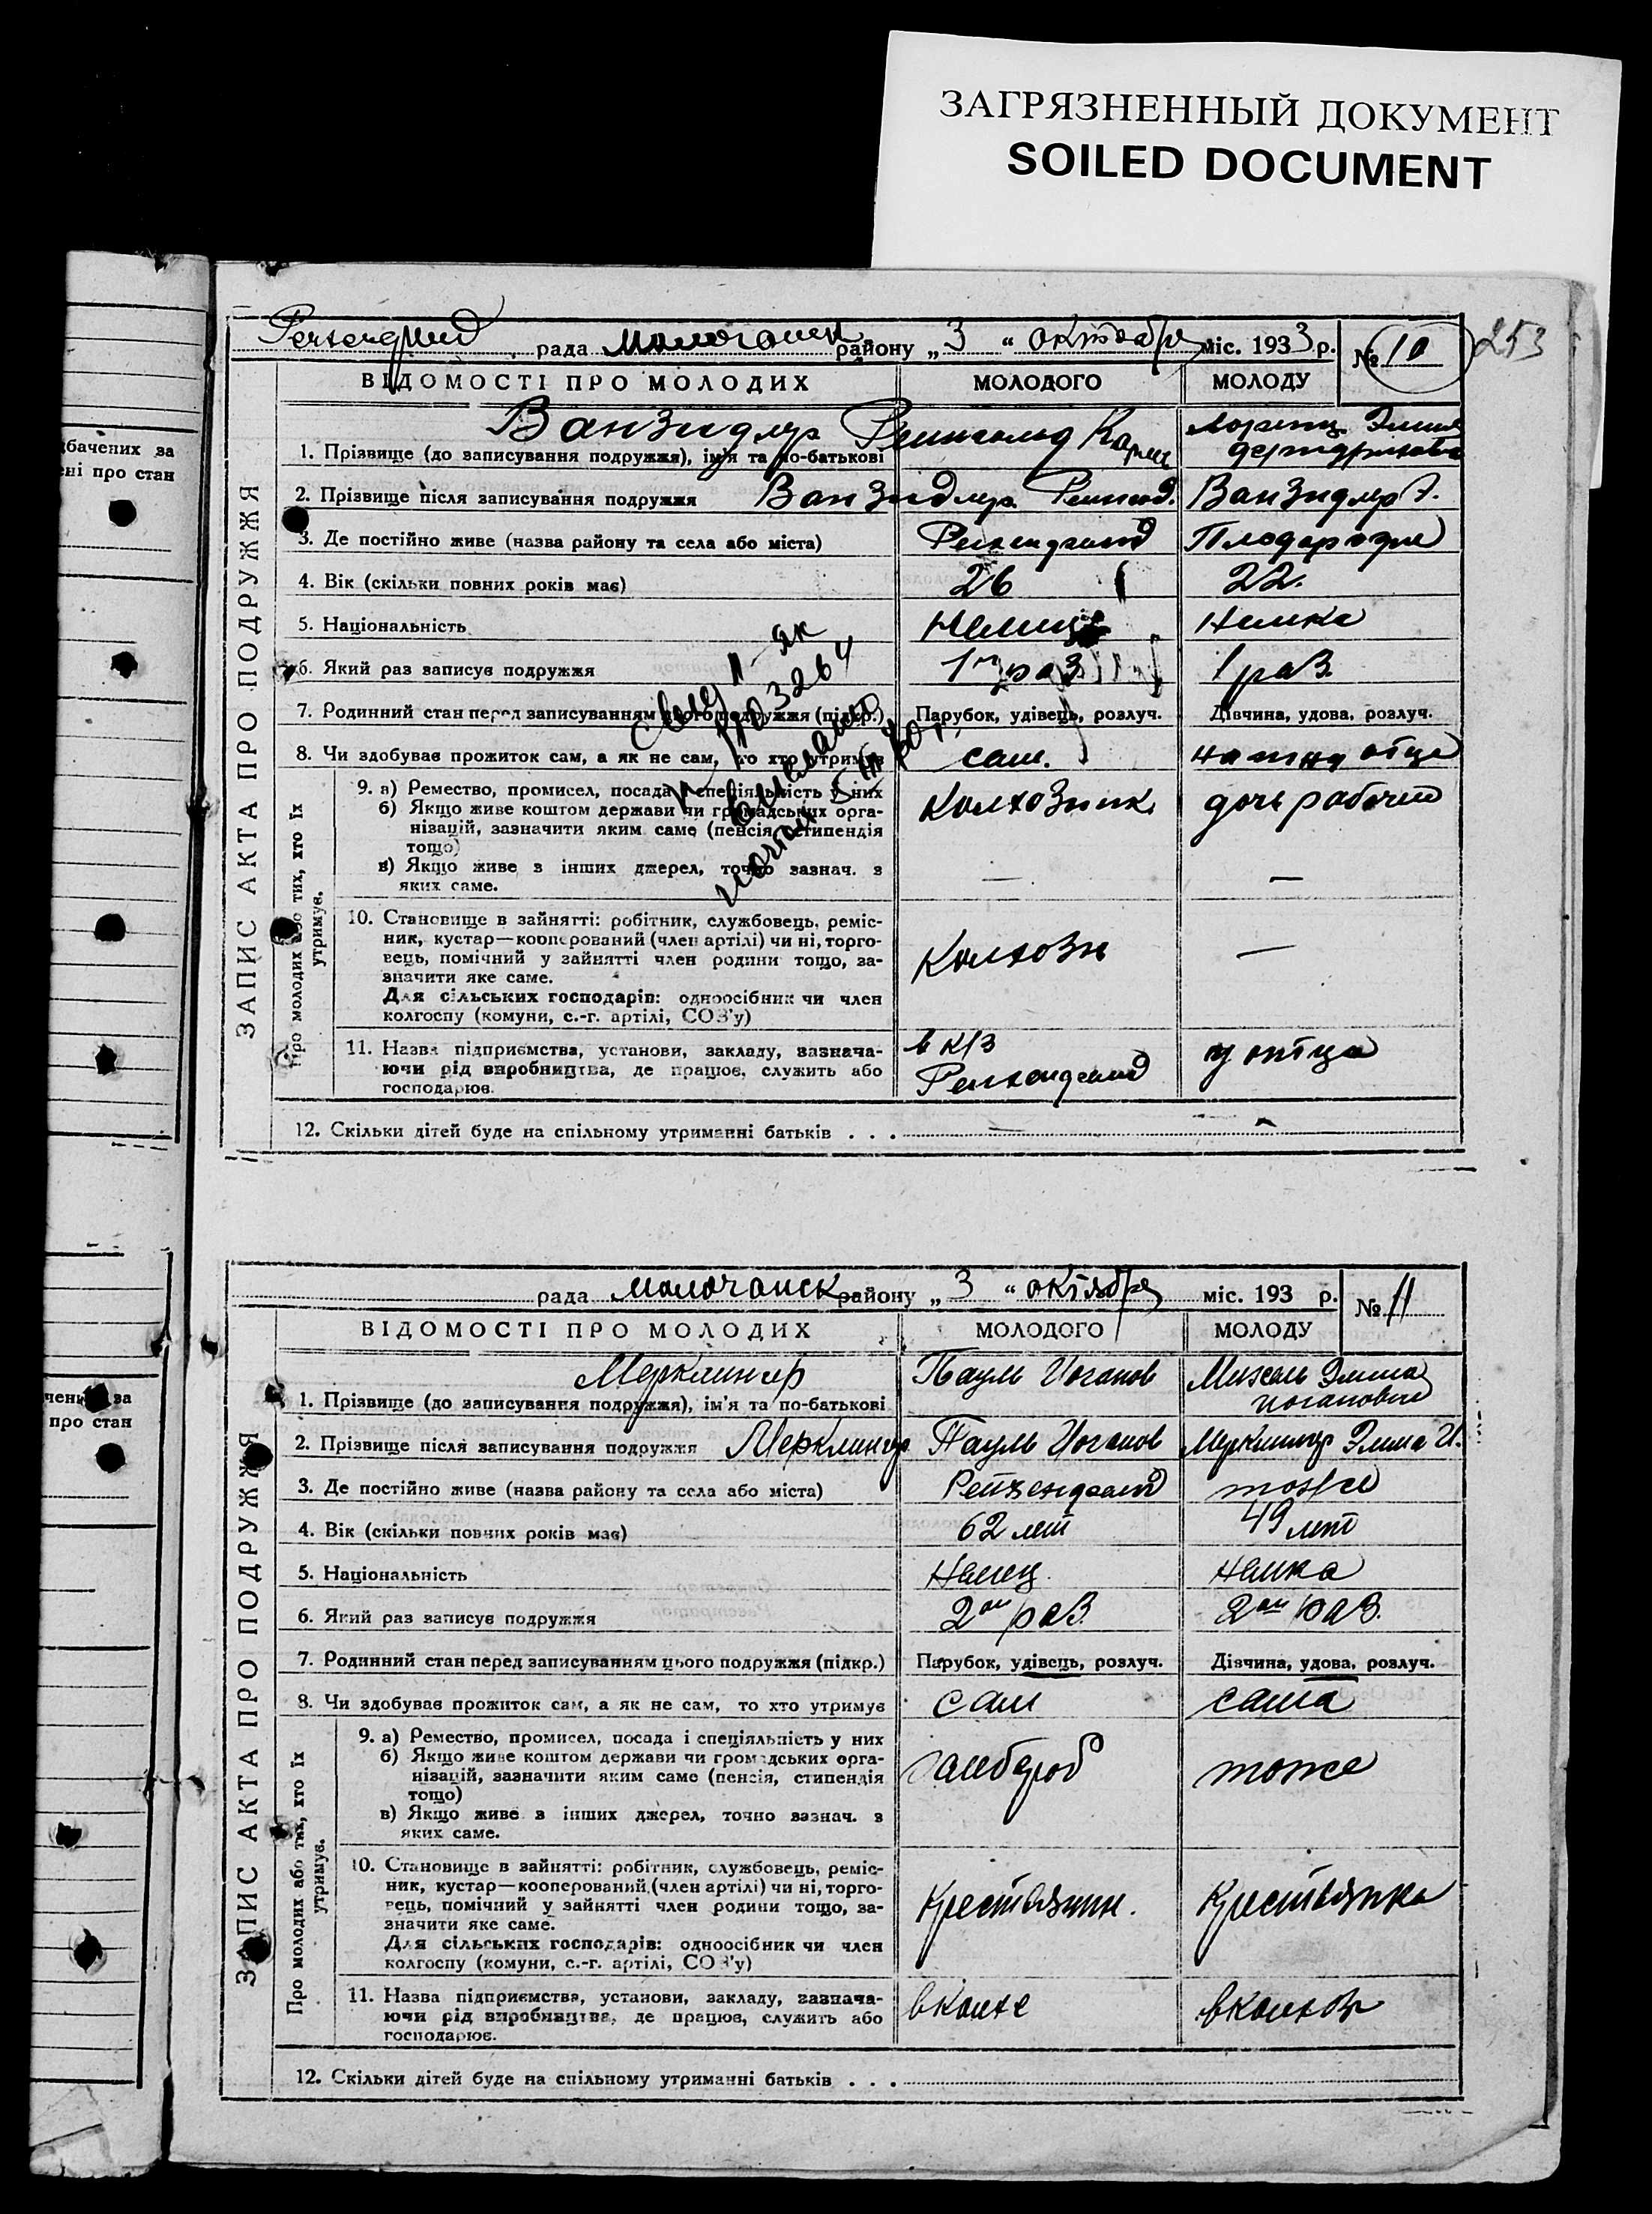 ЗАГРЯЗНЕННЫЙ ДОКУМЕНТ
SOILED DOCUMENT
бачених за
ені про стан
рада Молочанск району „3“ октября міс. 1933 р. № 10 253
ВІДОМОСТІ ПРО МОЛОДИХ МОЛОДОГО МОЛОДУ
ЗАПИС АКТА ПРО ПОДРУЖЖЯ
1. Прізвище (до записування подружжя), ім'я та по-батькові Ванзидлер Рейнгольд
2. Прізвище після записування подружжя Ванзидлер Ванзидлер Э.
3. Де постійно живе (назва району та села або міста) Рейхенфельд Плодородне
4. Вік (скільки повних років має) 26 22.
5. Національність Немец Немка
6. Який раз записує подружжя 1й раз 1 раз.
7. Родинний стан перед записуванням цього подружжя (підкр.) Парубок, удівець, розлуч. Дівчина, удова, розлуч.
8. Чи здобував прожиток сам, а як не сам, то хто утримує сам. отца
Про молодих або тих, хто їх утримує.
9. а) Ремество, промисел, посада і спеціяльність у них Колхозник дочь рабочей
б) Якщо живе коштом держави чи громадських орга-
нізацій, зазначити яким саме (пенсія, стипендія
тощо)
в) Якщо живе з інших джерел, точно зазнач. з — —
яких саме.
10. Становище в зайнятті: робітник, службовець, реміс-
ник, кустар—кооперований (член артілі) чи ні, торго- Колхозн —
вець, помічний у зайнятті член родини тощо, за-
значити яке саме.
Для сільських господарів: одноосібник чи член
колгоспу (комуни, с.-г. артілі, СОЗ'у)
11. Назва підприємства, установи, закладу, зазнача- в к/з у отца
ючи рід виробництва, де працює, служить або Рейхенфельд
господарює.
12. Скільки дітей буде на спільному утриманні батьків . . . —
чених за
про стан
рада Молочанск району „3“ октября міс. 193 р. № 11
ВІДОМОСТІ ПРО МОЛОДИХ МОЛОДОГО МОЛОДУ
ЗАПИС АКТА ПРО ПОДРУЖЖЯ
1. Прізвище (до записування подружжя), ім'я та по-батькові Мерклингер Пауль Иоганов Эмма Иогановне
2. Прізвище після записування подружжя Мерклингер Пауль Иоганов Мерклингер Эмма И.
3. Де постійно живе (назва району та села або міста) Рейхенфельд тоже
4. Вік (скільки повних років має) 62 лет 49 лет
5. Національність Немец. Немка
6. Який раз записує подружжя 2ой раз. 2ой раз.
7. Родинний стан перед записуванням цього подружжя (підкр.) Парубок, удівець, розлуч. Дівчина, удова, розлуч.
8. Чи здобував прожиток сам, а як не сам, то хто утримує сам сама
Про молодих або тих, хто їх утримує.
9. а) Ремество, промисел, посада і спеціяльність у них
б) Якщо живе коштом держави чи громадських орга- тоже
нізацій, зазначити яким саме (пенсія, стипендія
тощо)
в) Якщо живе з інших джерел, точно зазнач. з
яких саме.
10. Становище в зайнятті: робітник, службовець, реміс-
ник, кустар—кооперований (член артілі) чи ні, торго- Крестьянин. Крестьянка
вець, помічний у зайнятті член родини тощо, за-
значити яке саме.
Для сільських господарів: одноосібник чи член
колгоспу (комуни, с.-г. артілі, СОЗ'у)
11. Назва підприємства, установи, закладу, зазнача- в колхе в колхоз
ючи рід виробництва, де працює, служить або
господарює.
12. Скільки дітей буде на спільному утриманні батьків . . .